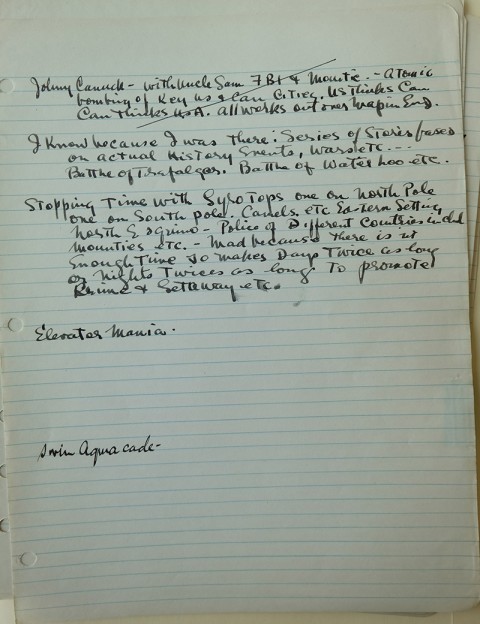 Johnny Canuck - with Uncle Sam FBI & Mountie. - Atomic
bombing of Key US & Can Cities, US thinks Can
Can thinks USA. all works out over Map in End.
I Know because I was there: Series of Stories based
on actual History Events, Wars etc. --
Battle of Trafalgar. Battle of Waterloo etc.
Stopping Time with Gyro Tops one on North Pole
one on South pole. Camels. etc Eastern Setting
North Esquimo - Police of Different Countries includ
mounties etc. - Mad because there isnt
Enough Time so makes Days Twice as long
or Nights Twices as long To promote
Crime & Getaway etc.
Elevator Mania.
Swim Aquacade-